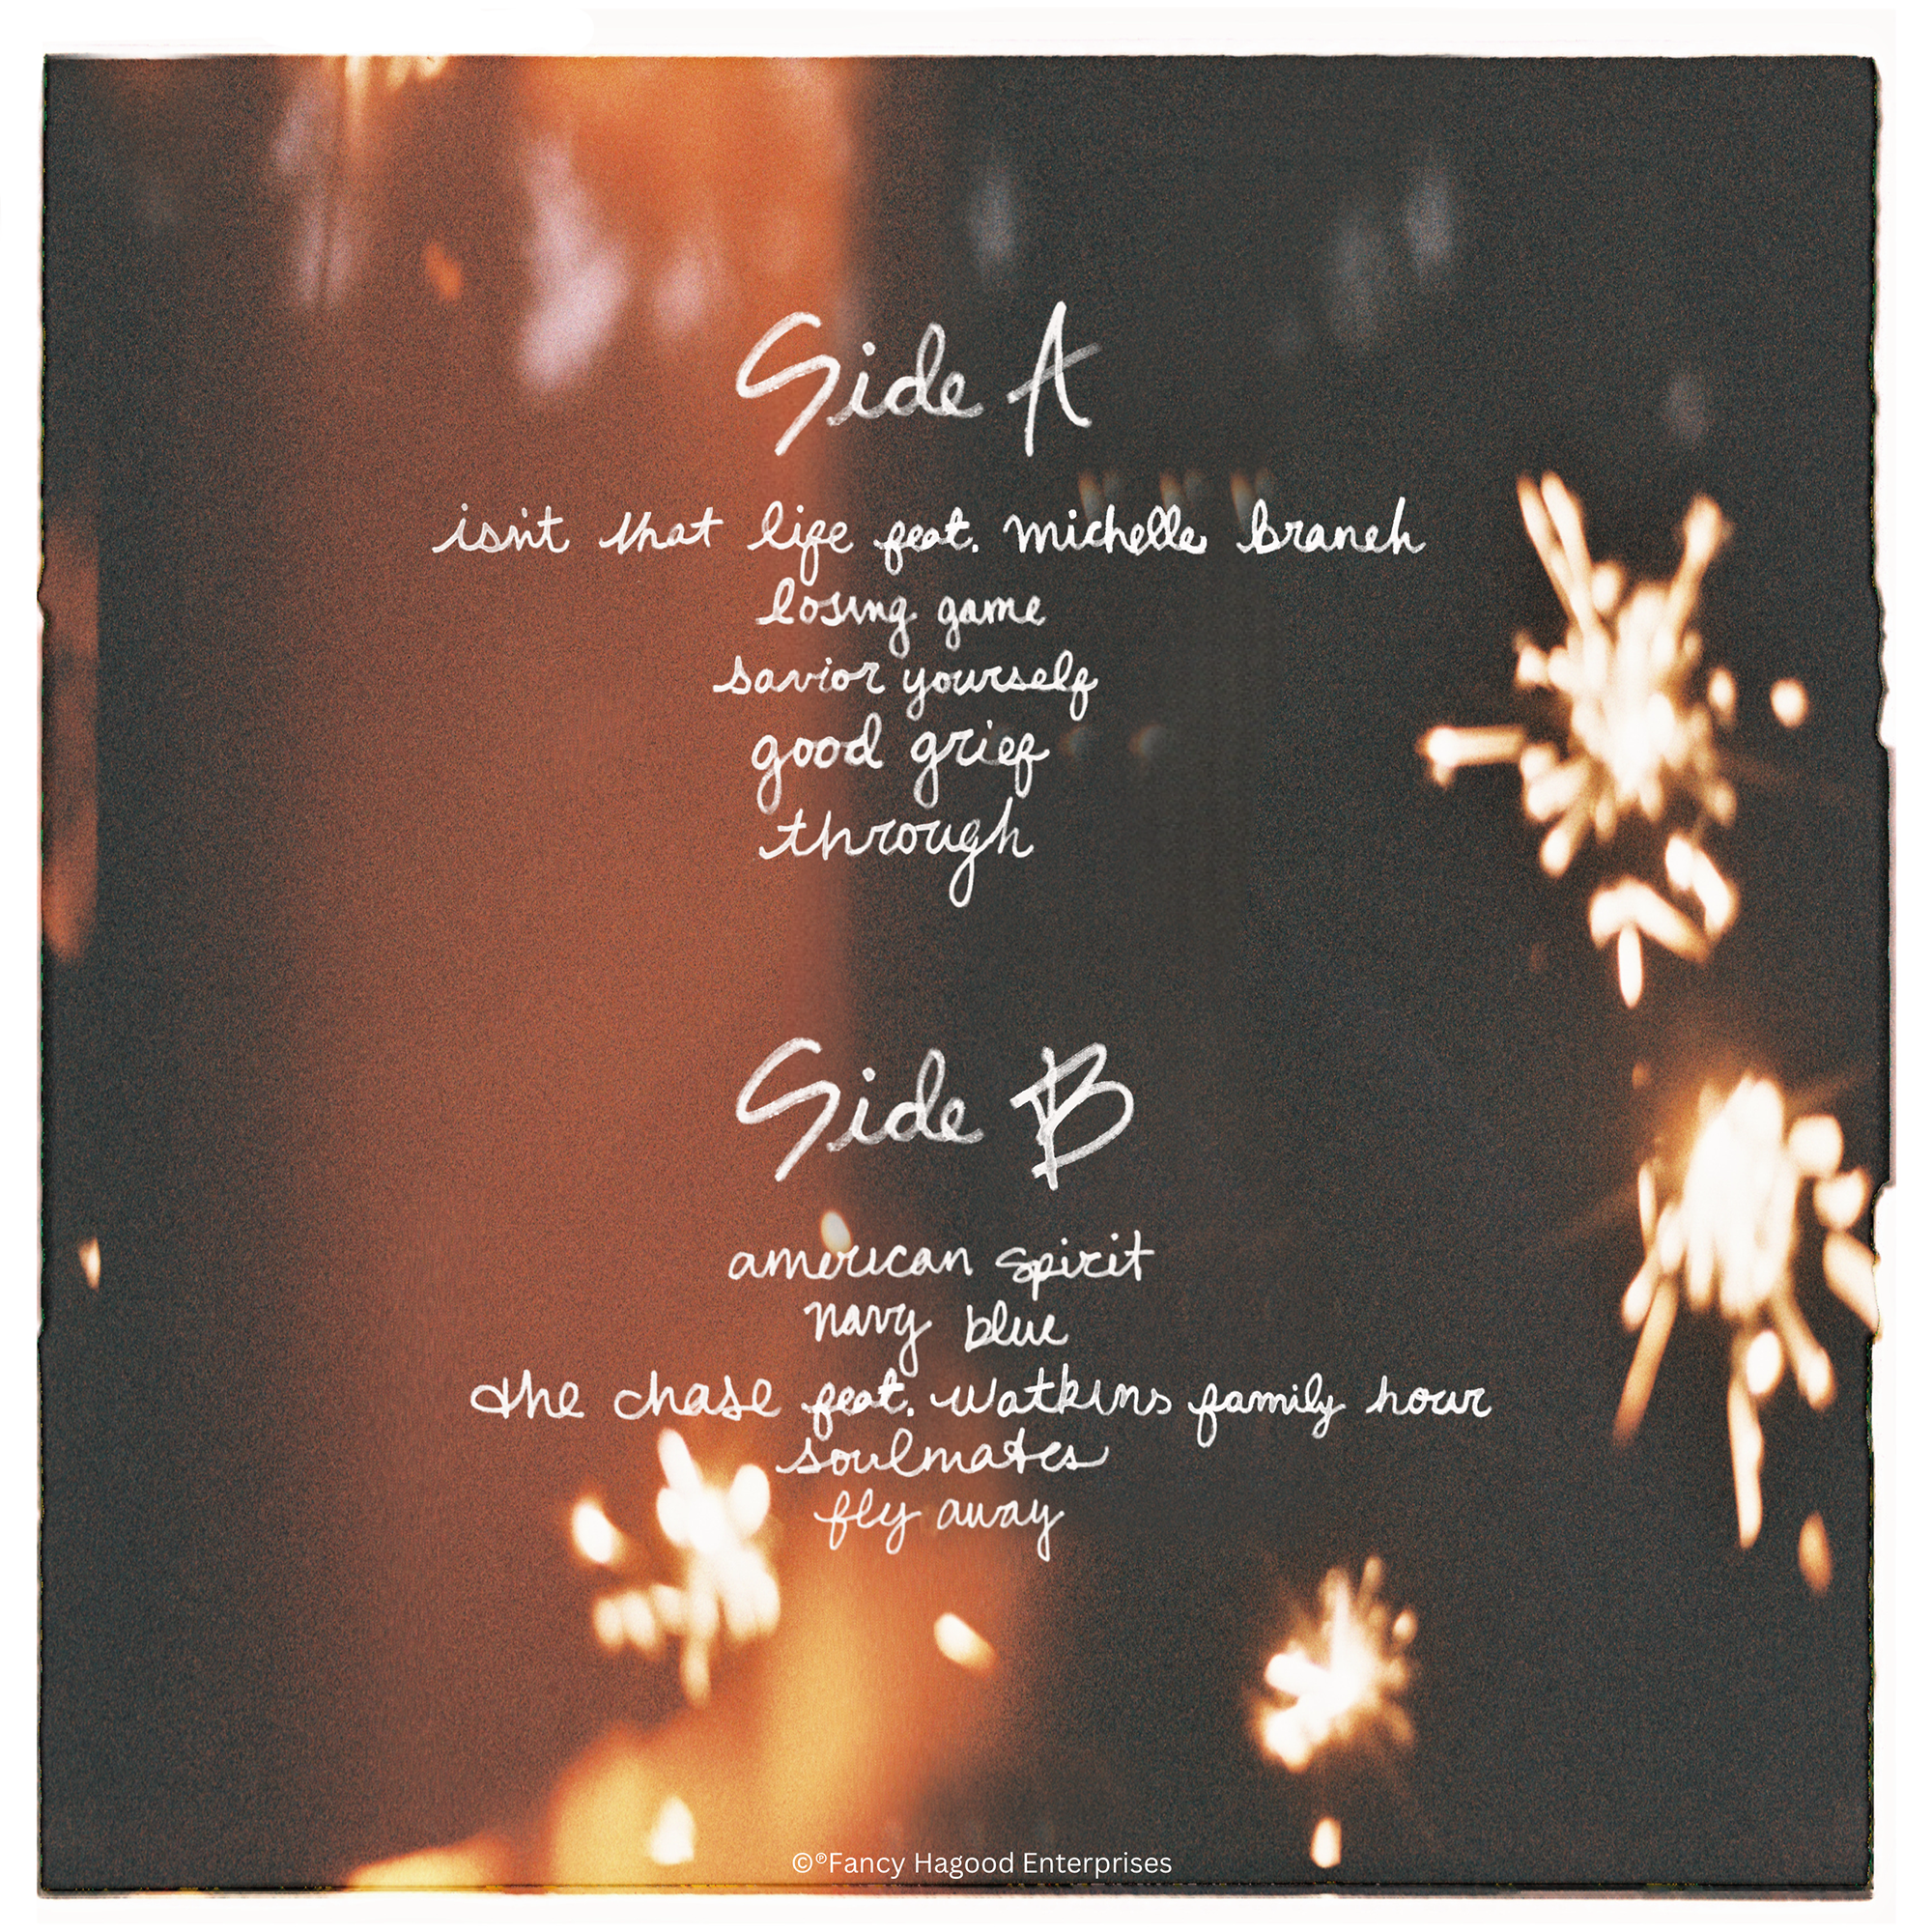 Side A
isn't that life feat. michelle branch
losing game
savior yourself
good grief
through
Side B
american spirit
navy blue
the chase feat. watkins family hour
soulmates
fly away
©℗Fancy Hagood Enterprises